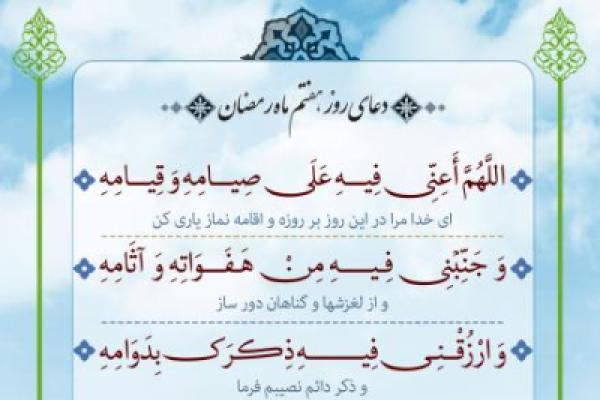 دعای روز هفتم ماه رمضان
اللَّهُمَّ أَعِنِّی فِیهِ عَلَی صِیامِهِ وَ قِیامِهِ
ای خدا مرا در این روز بر روزه و اقامه نماز یاری کن
وَ جَنِّبْنِی فِیهِ مِنْ هَفَوَاتِهِ وَ آثَامِهِ
و از لغزشها و گناهان دور ساز
وَ ارْزُقْنِی فِیهِ ذِکرَک بِدَوَامِهِ
و ذکر دائم نصیبم فرما